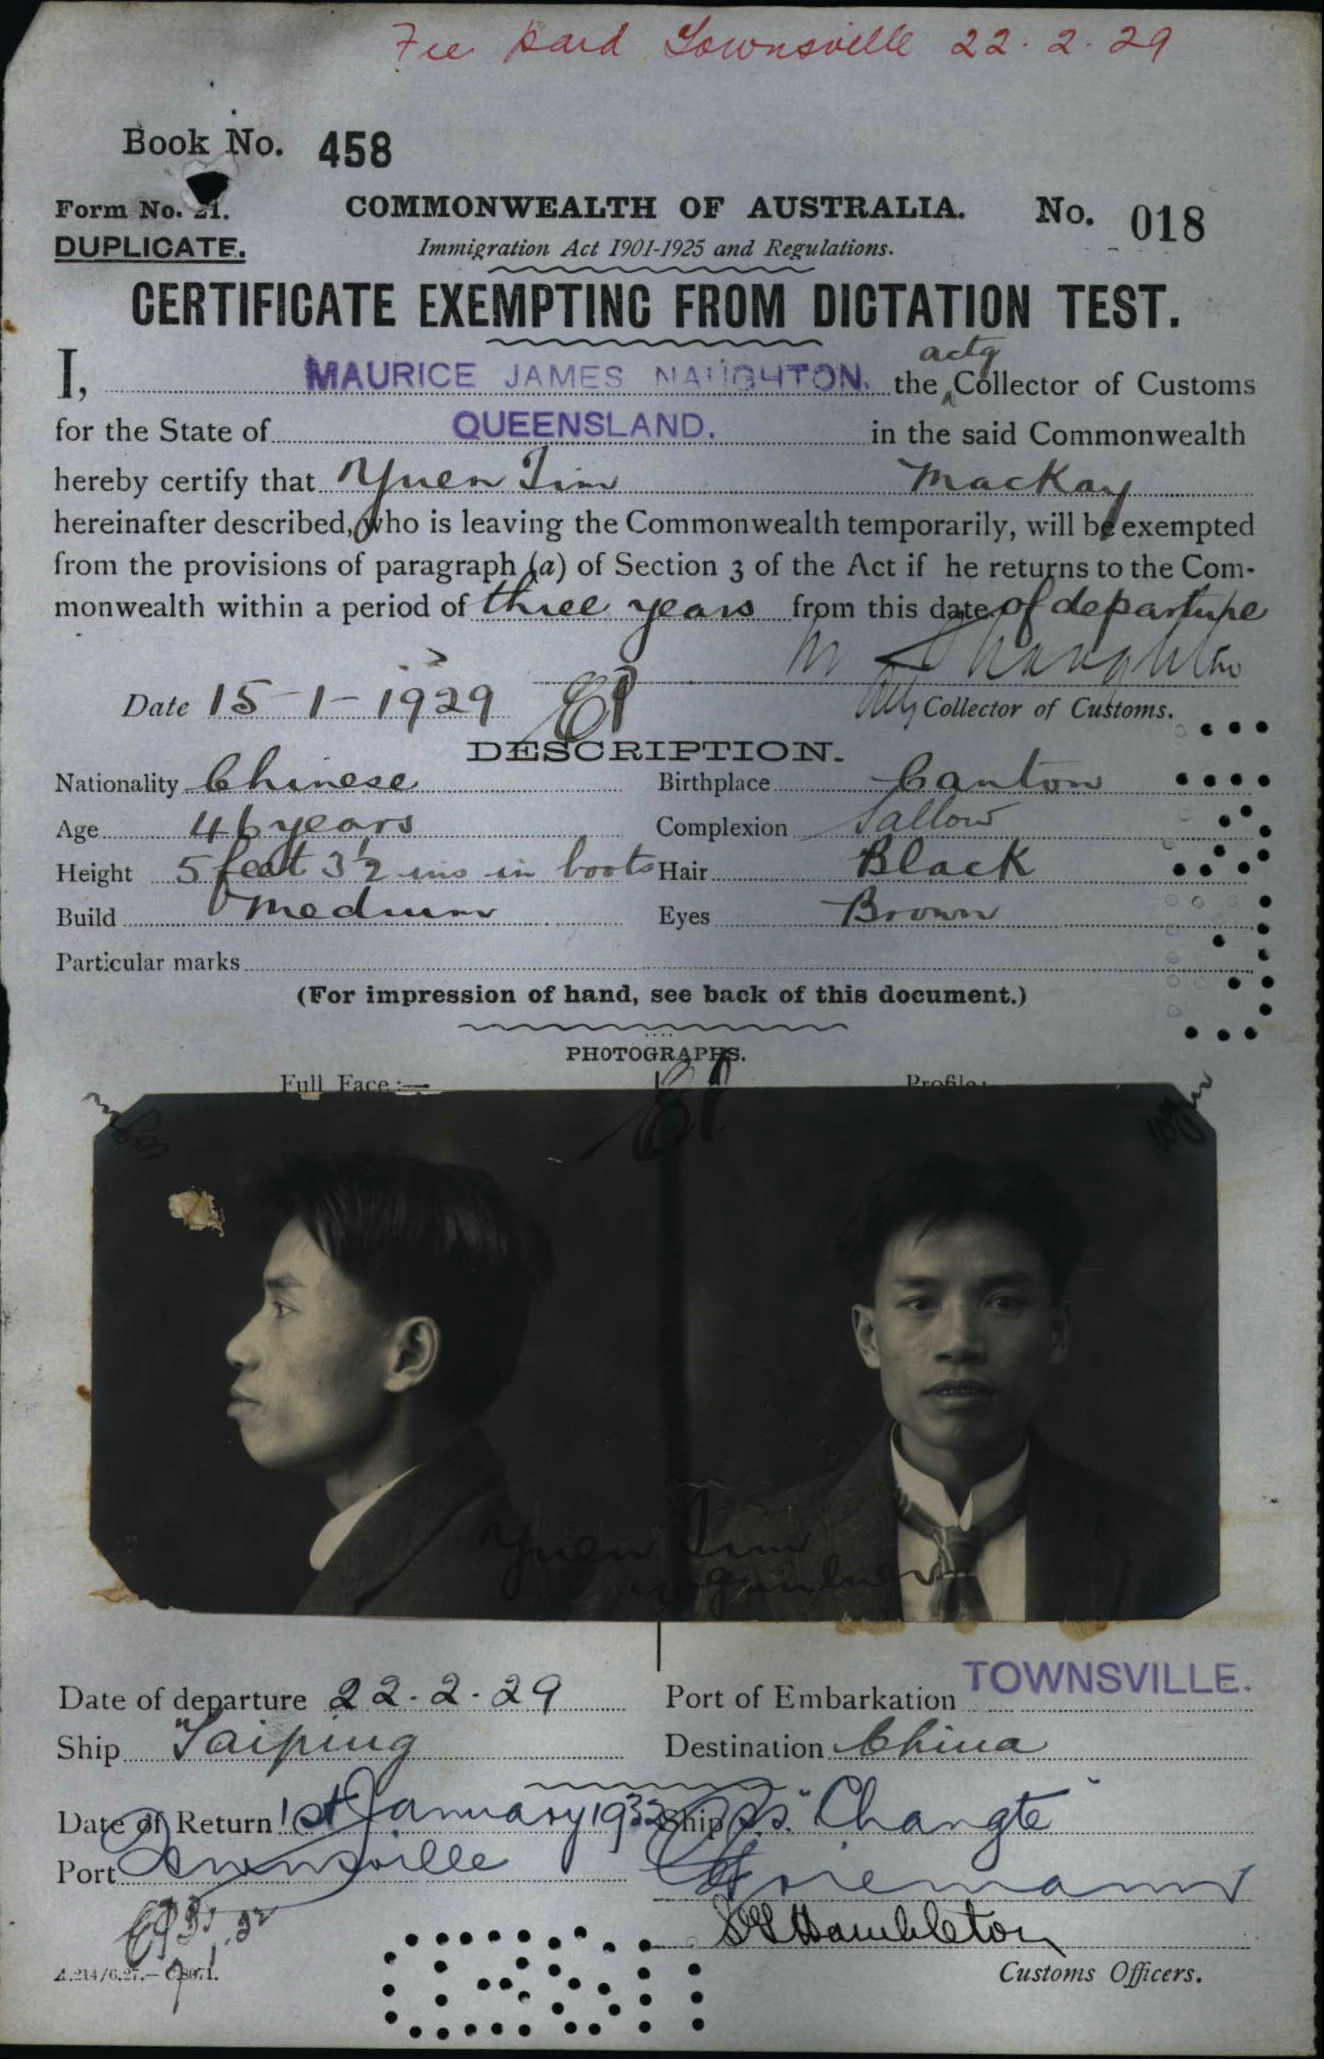 Fee paid Townsville 22.2.29
Book No. 458
Form No. 21.
COMMONWEALTH OF AUSTRALIA.
No. 018
DUPLICATE.
Immigration Act 1901-1925 and Regulations.
CERTIFICATE EXEMPTING FROM DICTATION TEST.
actg
I, MAURICE JAMES NAUGHTON. the Collector of Customs
for the State of QUEENSLAND. in the said Commonwealth
hereby certify that Yuen Tim MacKay
hereinafter described, who is leaving the Commonwealth temporarily, will be exempted
from the provisions of paragraph (a) of Section 3 of the Act if he returns to the Com-
monwealth within a period of three years from this date of departure
M J Naughton
Date 15-1-1929
Collector of Customs.
DESCRIPTION.
Nationality Chinese Birthplace Canton
Age 46 years Complexion Sallow
Height 5 feet 3½ ins in boots Hair Black
Build Medium Eyes Brown
Particular marks
(For impression of hand, see back of this document.)
PHOTOGRAPHS.
Full Face:— Profile:
Yuen Tim
Date of departure 22.2.29 Port of Embarkation TOWNSVILLE.
Ship "Taiping Destination China
Date of Return 1st January 1932 Ship S.S. "Changte"
Port Townsville
Hambleton
Customs Officers.